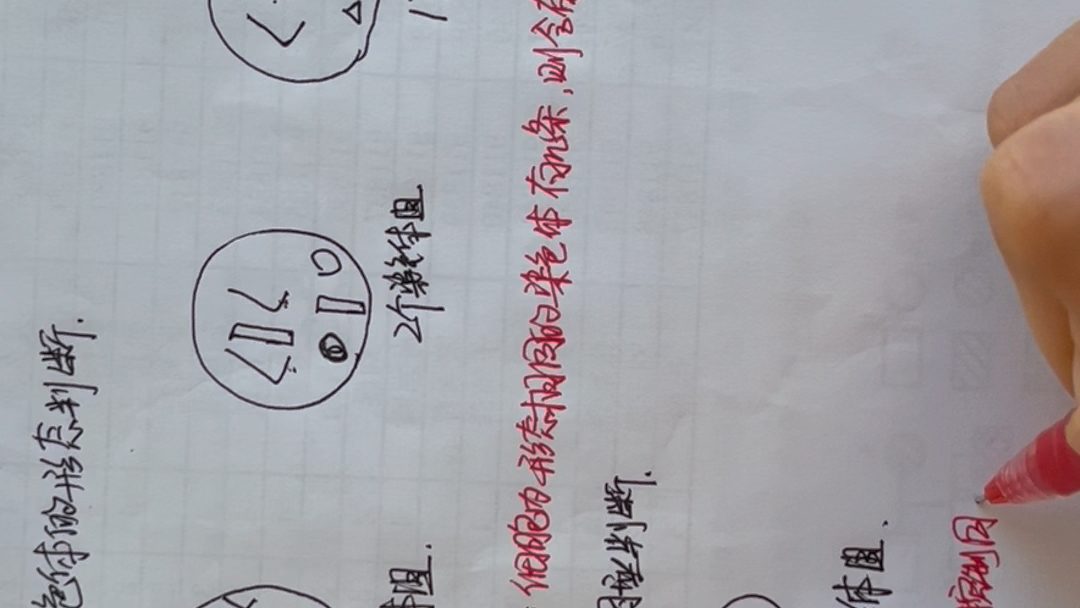 色体的形态判断.
2个染色体组
体组.
细胞内形态相同的染色体有几条,则含有
判断.
体组.
控制同